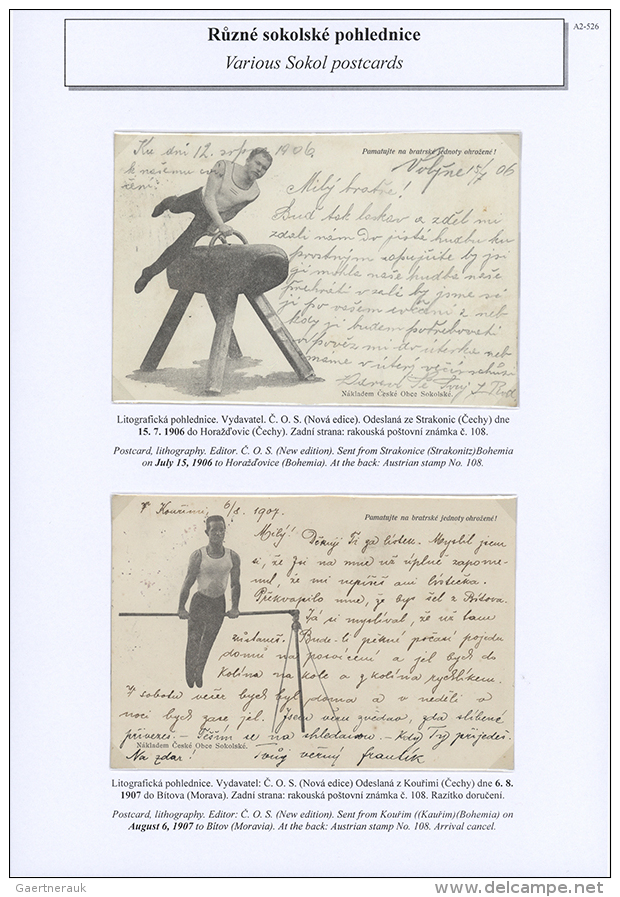 A2-526
Různé sokolské pohlednice
Various Sokol postcards
Ku dni 12. srpna 1906
k našemu cvi
čení!
Pamatujte na bratrské jednoty ohrožené!
Volyne 15/7 06
Milý bratře!
Buď tak laskav a zděl mi
zdali nám do jisté hudbu ku
prostným zapůjčíte by jsi
jí mohla naše hudba naše
přehráti v sali by jsme si
ji po vašem cvičení z neb
kdy ji budem potřebovati
máme v úterý večír schůzi
Nákladem České Obce Sokolské.
Litografická pohlednice. Vydavatel. Č. O. S. (Nová edice). Odeslaná ze Strakonic (Čechy) dne
15. 7. 1906 do Horažďovic (Čechy). Zadní strana: rakouská poštovní známka č. 108.
Postcard, lithography. Editor. Č. O. S. (New edition). Sent from Strakonice (Strakonitz)Bohemia
on July 15, 1906 to Horažďovice (Bohemia). At the back: Austrian stamp No. 108.
V Kouřimi, 6/8. 1907.
Pamatujte na bratrské jednoty ohrožené!
Milý! Děkuji Ti za lístek. Myslil jsem
si, že Jsi na mne už úplně zapome-
nul, že mi nepíšeš ani lístečka.
Překvapilo mne, že byl šel z Bítova.
Já si myslíval, že už tam
zůstaneš. Bude-li pěkné počasí pojedu
domů na posvícení a jel bych do
Kolína na kole a z Kolína rychlíkem.
V sobotu večer bych byl doma a v neděli v
noci bych zase jel. Jsem věru zvědav, zda slíbené
přivezeš. – Těším se na shledanou. – Kdy Ty přijedeš.
Nákladem České Obce Sokolské.
Na zdar! Tvůj věrný frantík
Litografická pohlednice. Vydavatel: Č. O. S. (Nová edice) Odeslaná z Kouřimi (Čechy) dne 6. 8.
1907 do Bítova (Morava). Zadní strana: rakouská poštovní známka č. 108. Razítko doručení.
Postcard, lithography. Editor: Č. O. S. (New edition). Sent from Kouřim ((Kauřim)(Bohemia) on
August 6, 1907 to Bítov (Moravia). At the back: Austrian stamp No. 108. Arrival cancel.
Gaertnerauk
www.delcampe.net